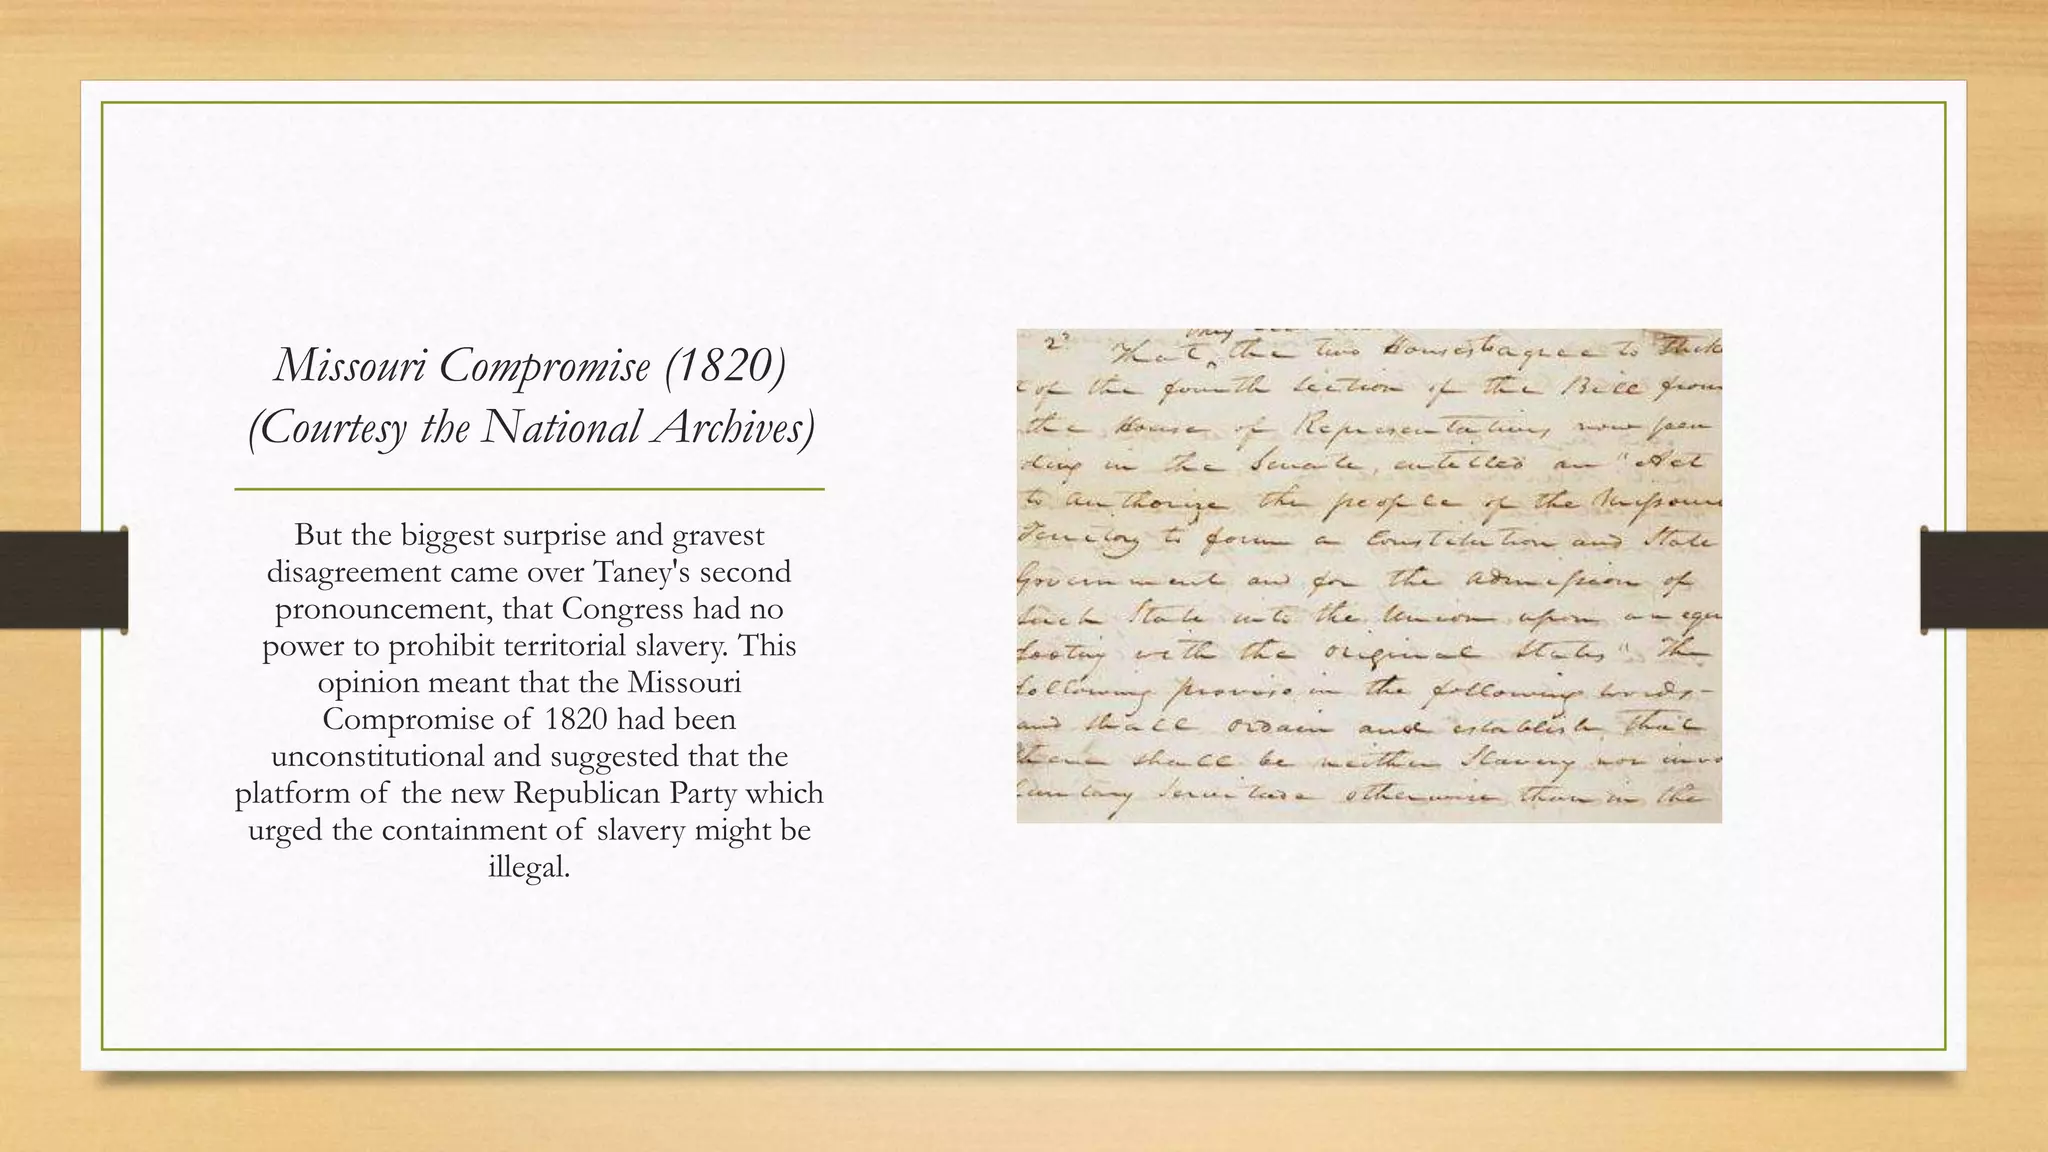 Missouri Compromise (1820)
(Courtesy the National Archives)
But the biggest surprise and gravest
disagreement came over Taney's second
pronouncement, that Congress had no
power to prohibit territorial slavery. This
opinion meant that the Missouri
Compromise of 1820 had been
unconstitutional and suggested that the
platform of the new Republican Party which
urged the containment of slavery might be
illegal.
2d That the two Houses agree to
of the fourth Section of the Bill from
the House of Representatives now pen
ding in the Senate, entitled an "Act
to authorize the people of the Missouri
Territory to form a Constitution and State
Government and for the admission of
such State into the Union upon an equ
footing with the original States" The
following proviso in the following words-
and shall ordain and establish that
there shall be neither Slavery nor invo
luntary Servitude otherwise than in the